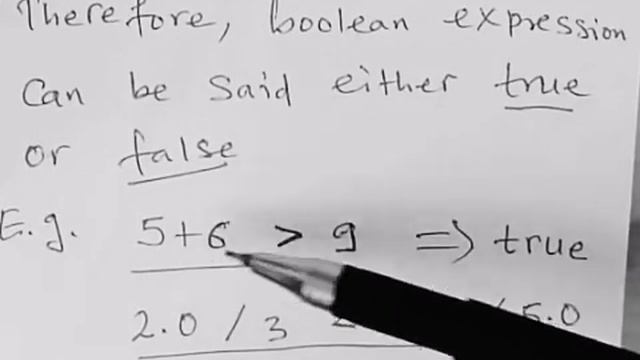 Therefore, boolean expression
Can be said either true
or false
E.g. 5+6 > 9 => true
2.0 / 3